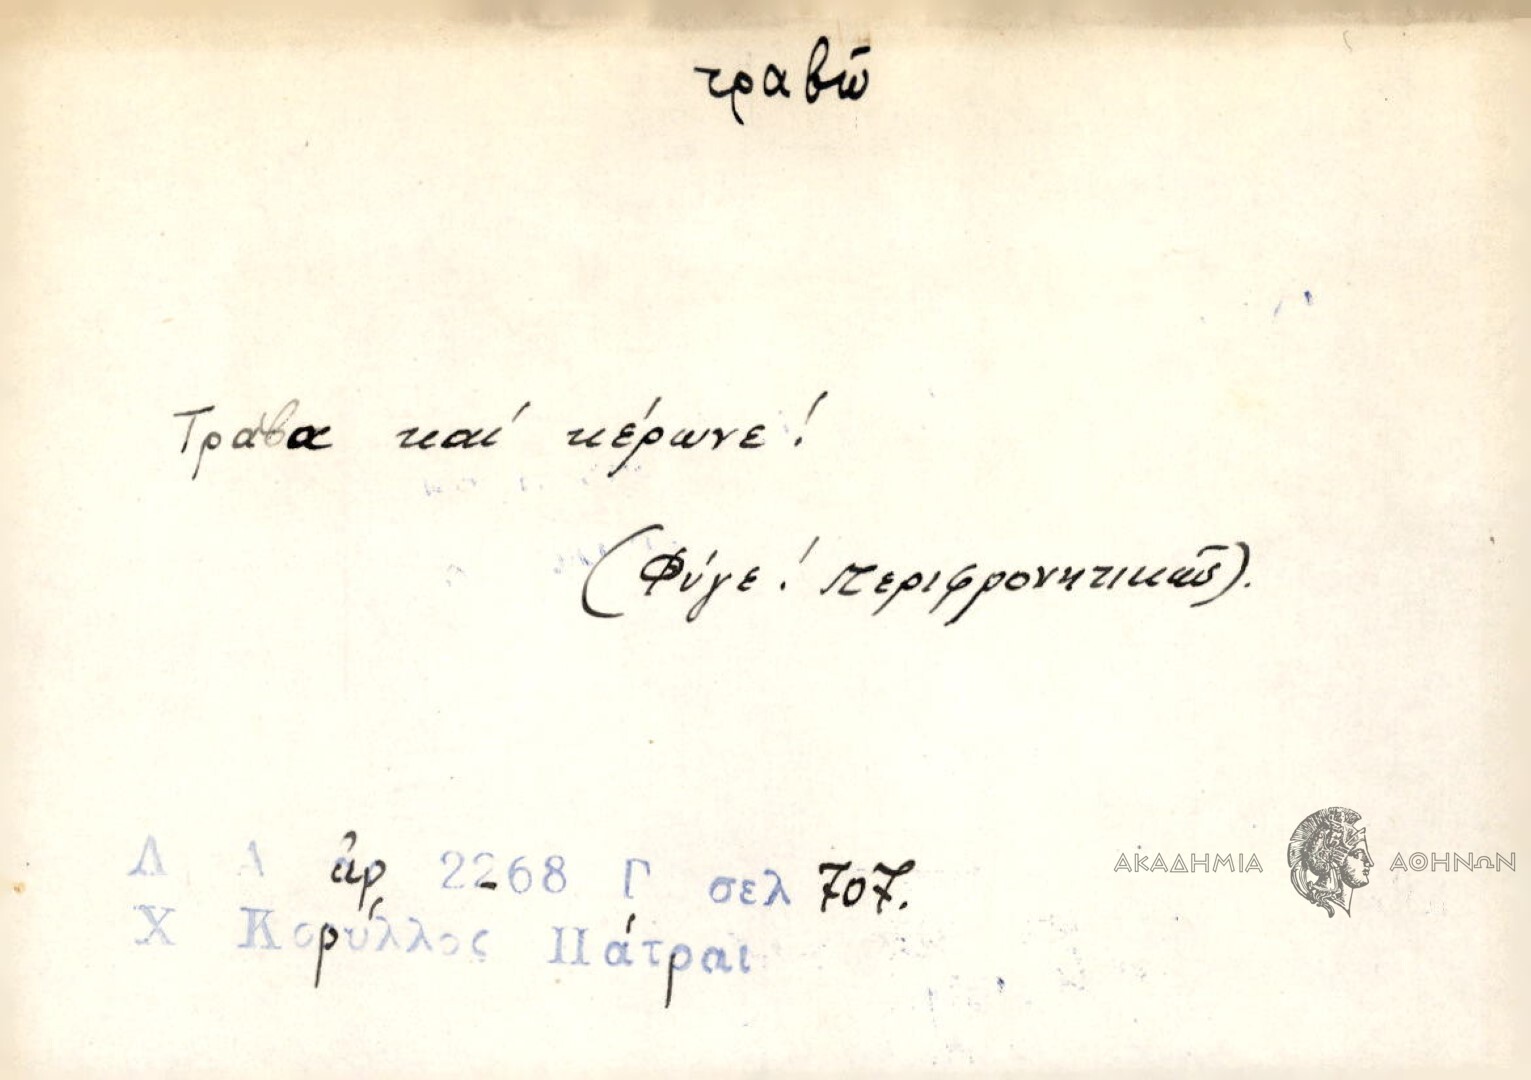 τραβῶ
Τράβα καί κέρωνε!
(Φύγε! περιφρονητικῶς).
Λ Α ἀρ 2268 Γ σελ 707.
Χ Κορύλλος Πάτραι
ΑΚΑΔΗΜΙΑ ΑΘΗΝΩΝ